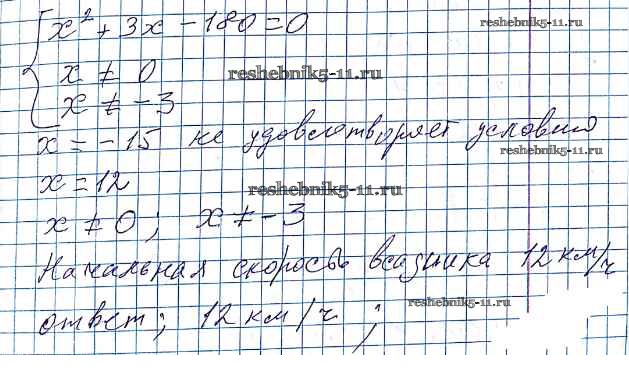 x² + 3x - 180 = 0
reshebnik5-11.ru
x ≠ 0
reshebnik5-11.ru
x ≠ -3
x = -15 не удовлетворяет условию
reshebnik5-11.ru
x = 12
reshebnik5-11.ru
x ≠ 0; x ≠ -3
Начальная скорость всадника 12 км/ч
reshebnik5-11.ru
ответ; 12 км/ч;